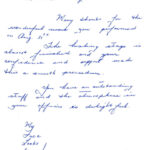 Many thanks for the
wonderful work you performed
on Aug 11th
The healing stage is
almost finished and your
confidence and support made
this a smooth procedure.
You have an outstanding
staff and the atmosphere in
your office is delightful.
My
Face
Looks